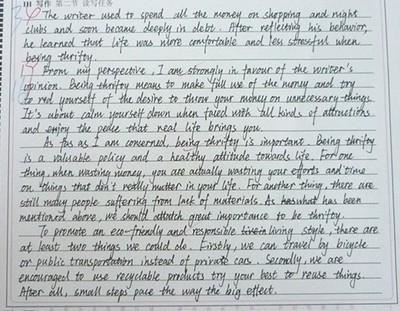 写作 第二节 读写任务
The writer used to spend all the money on shopping and night
clubs and soon became deeply in debt. After reflecting his behavior,
he learned that life was more comfortable and less stressful when
being thrifty.
From my perspective, I am strongly in favour of the writer's
opinion. Being thrifty means to make full use of the money and try
to rid yourself of the desire to throw your money on unnecessary things.
It's about calm yourself down when faced with all kinds of attractions
and enjoy the peace that real life brings you.
As far as I am concerned, being thrifty is important. Being thrifty
is a valuable policy and a healthy attitude towards life. For one
thing, when wasting money, you are actually wasting your efforts and time
on things that don't really matter in your life. For another thing, there are
still many people suffering from lack of materials. As what has been
mentioned above, we should attach great importance to be thrifty.
To promote an eco-friendly and responsible living style, there are
at least two things we could do. Firstly, we can travel by bicycle
or public transportation instead of private cars. Secondly, we are
encouraged to use recyclable products try your best to reuse things.
After all, small steps pace the way the big effect.